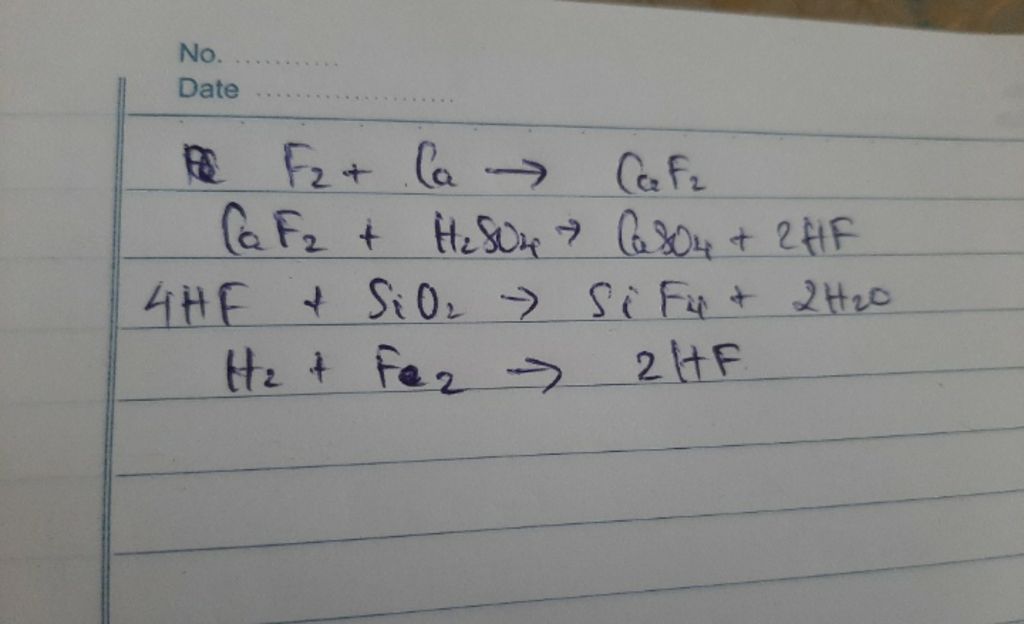 No. ............
Date ......................
F₂ + Ca → CaF₂
CaF₂ + H₂SO₄ → CaSO₄ + 2HF
4HF + SiO₂ → SiF₄ + 2H₂O
H₂ + Fe₂ → 2HF